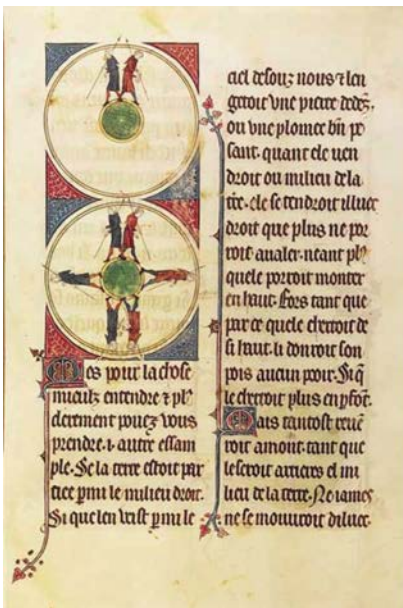 es pour la chose
mieulz entendre ⁊ pl⁹
clerement pouez vous
prendre .i. autre essam
ple. Se la terre estoit par
tice pmi le milieu droit.
Si que len veist pmi le
ciel desouz nous ⁊ len
getoit vne pierre dedez.
ou vne plomee bn pe
sant. quant ele uen
droit ou milieu dela
tre. ele se tendroit illuec
droit que plus ne por
roit aualer. neant pl⁹
quele porroit monter
en haut. fors tant que
par ce quele cherroit de
si haut. li donroit son
pois aucun pooir. Si q
le cherroit plus en pfot.
Mais tantost reue
roit amont. tant que
le seroit arrieres el mi
lieu de la terre. Ne iames
ne se mouuroit diluec.